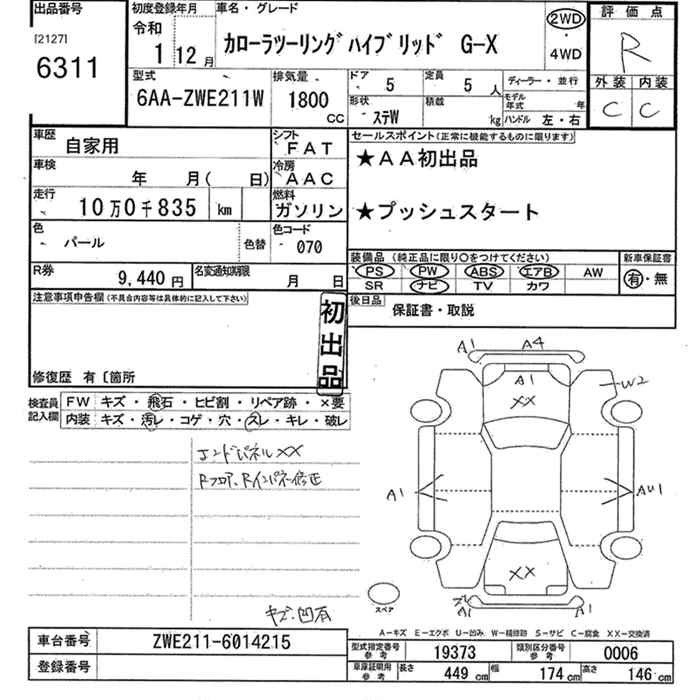 出品番号
[2127]
6311
初度登録年月
令和
1 12月
車名・グレード
カローラツーリングハイブリッド G-X
2WD
・
4WD
評価点
R
外装 内装
C C
型式
6AA-ZWE211W
排気量
1800
CC
ドア
5
定員
5 人
形状
ステW
積載
kg
ディーラー・並行
モデル年式 年
ハンドル 左・右
車歴
自家用
シフト
FAT
車検
年 月( 日)
冷房
AAC
走行
10万0千835 km
燃料
ガソリン
色
パール
色替
色コード
070
R券
9,440 円
名変通知期限
月 日
セールスポイント(正常に機能するものに限ります)
★AA初出品
★プッシュスタート
装備品 (純正品に限り○をつけてください)
PS PW ABS エアB AW
SR ナビ TV カワ
新車保証書
有・無
後日品
保証書・取説
注意事項申告欄(不具合内容等は具体的に記入して下さい)
初出品
修復歴 有〔箇所
検査員記入欄
FW キズ・飛石・ヒビ割・リペア跡・×要
内装 キズ・汚レ・コゲ・穴・スレ・キレ・破レ
エンドパネルXX
Rフロア、Rインパネ修正
キズ、凹有
A1 A4
A1
XX
W2
A1
AU1
XX
A1 A1
スペア
A-キズ E-エクボ U-凹み W-補修跡 S-サビ C-腐食 XX-交換済
車台番号
ZWE211-6014215
登録番号
型式指定番号
参考
19373
類別区分番号
参考
0006
車庫証明用
参考
長さ 449 cm 幅 174 cm 高さ 146 cm